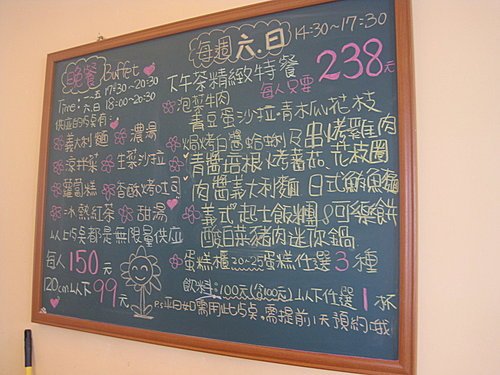 晚餐 Buffet
一~五 17:30~20:30
Time: 六.日 18:00~20:30
供應的點有:
義大利麵 濃湯
涼拌菜 生菜沙拉
蘿蔔糕 香酥烤吐司
冰.熱紅茶 甜湯
以上點都是無限量供應
每人150元
120cm以下99元
每週六.日 14:30~17:30
下午茶精緻特餐 每人只要238元
泡菜牛肉
青豆蛋沙拉.青木瓜花枝
焗烤白醬蛤蜊及串烤雞肉
青醬培根.烤蕃茄.花皮圈
肉醬義大利麵 日式鮪魚麵
義式起士飯糰.可樂餅
酸白菜豬肉迷你鍋
蛋糕櫃20~25蛋糕任選3種
飲料:100元(含100元)以下任選1杯
P.S平日如需用此點,需提前1天預約哦